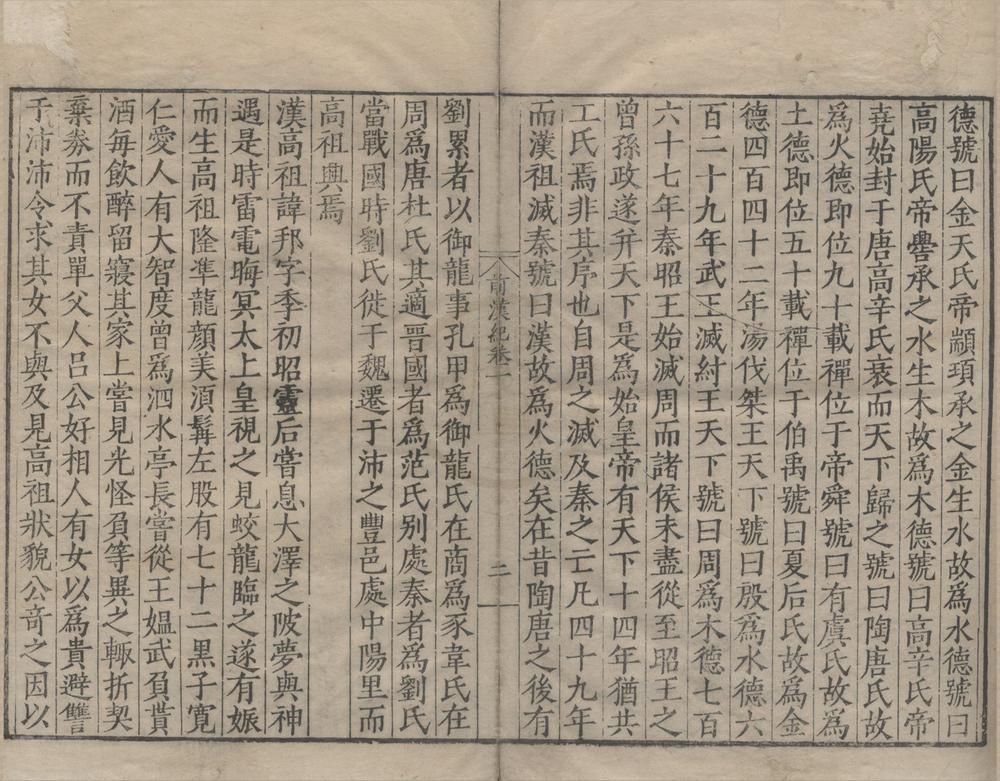 德號曰金天氏帝顓頊承之金生水故爲水德號曰
高陽氏帝嚳承之水生木故爲木德號曰高辛氏帝
堯始封于唐高辛氏衰而天下歸之號曰陶唐氏故
爲火德即位九十載禪位于帝舜號曰有虞氏故爲
土德即位五十載禪位于伯禹號曰夏后氏故爲金
德四百四十二年湯伐桀王天下號曰殷爲水德六
百二十九年武王滅紂王天下號曰周爲木德七百
六十七年秦昭王始滅周而諸侯未盡從至昭王之
曾孫政遂并天下是爲始皇帝有天下十四年猶共
工氏焉非其序也自周之滅及秦之亡凡四十九年
而漢祖滅秦號曰漢故爲火德矣在昔陶唐之後有
前漢紀卷一
二
劉累者以御龍事孔甲爲御龍氏在商爲豕韋氏在
周爲唐杜氏其適晋國者爲范氏别處秦者爲劉氏
當戰國時劉氏徙于魏遷于沛之豐邑處中陽里而
高祖興焉
漢高祖諱邦字季初昭靈后嘗息大澤之陂夢與神
遇是時雷電晦冥太上皇視之見蛟龍臨之遂有娠
而生高祖隆準龍顔美須髯左股有七十二黒子寛
仁愛人有大智度曾爲泗水亭長嘗從王媼武負貰
酒毎飲醉留寢其家上嘗見光怪負等異之輙折契
棄券而不責單父人吕公好相人有女以爲貴避讐
于沛沛令求其女不與及見高祖狀貌公竒之因以